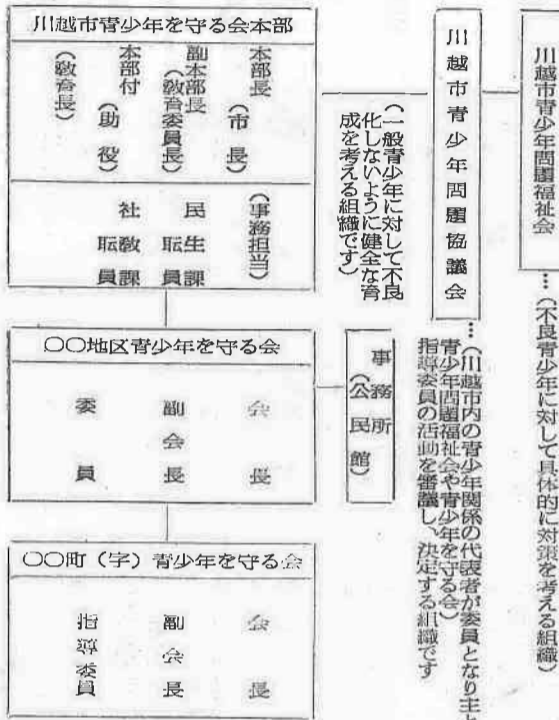 川越市青少年問題福祉会
…(不良青少年に対して具体的に対策を考える組織)
川越市青少年問題協議会
…(川越市内の青少年関係の代表者が委員となり主と
青少年問題福祉会や青少年を守る会)
指導委員の活動を審議し、決定する組織です
(一般青少年に対して不良
化しないように健全な育
成を考える組織です)
川越市青少年を守る会本部
本部長(市長)
副本部長(教育委員長)
本部付(助役)
(教育長)
(事務担当)
民生課転員
社教課転員
事務所
(公民館)
〇〇地区青少年を守る会
会長
副会長
委員
〇〇町(字)青少年を守る会
会長
副会長
指導委員